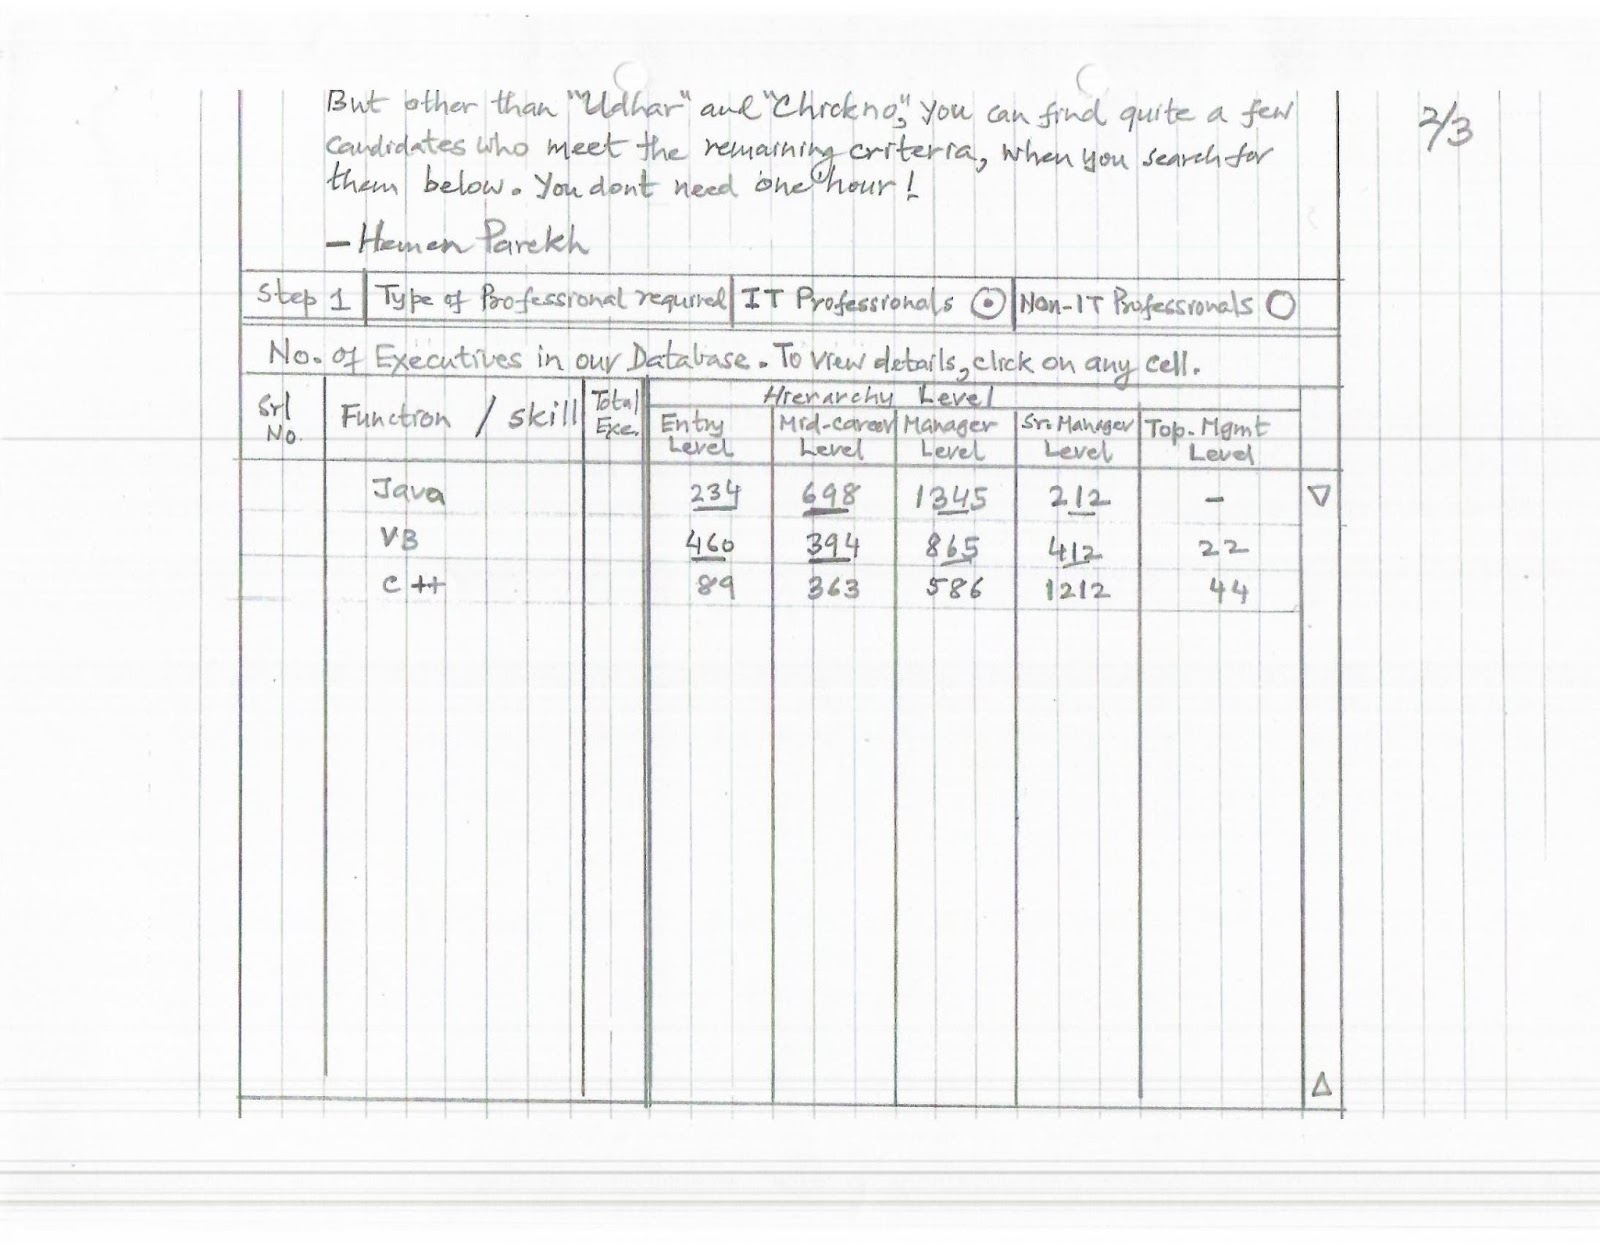 2/3
But other than "Udhar" and "Chickno", you can find quite a few
candidates who meet the remaining criteria, when you search for
them below. You dont need one hour!
— Hemen Parekh
Step 1 Type of Professional required IT Professionals Non-IT Professionals
No. of Executives in our Database. To view details, click on any cell.
Srl No. Function / Skill Total Exe. Hierarchy Level
Entry Level Mid-career Level Manager Level Sr. Manager Level Top. Mgmt Level
Java 234 698 1345 212 –
VB 460 394 865 412 22
C++ 89 363 586 1212 44